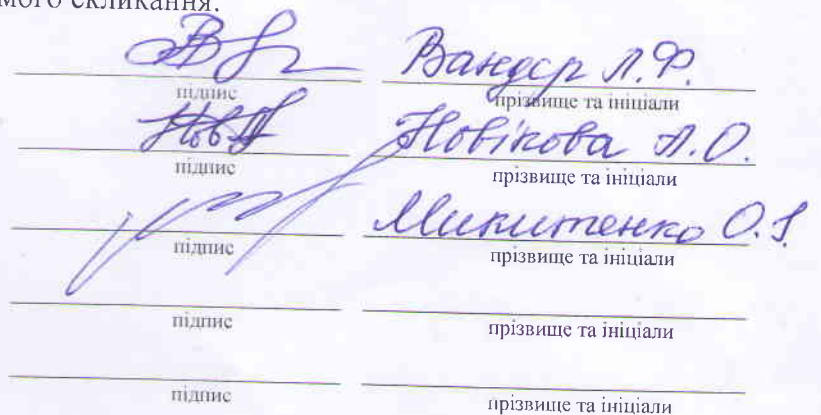 мого скликання.
Вандер Л.Ф.
підпис прізвище та ініціали
Новікова Л.О.
підпис прізвище та ініціали
Микитенко О.І.
підпис прізвище та ініціали
підпис прізвище та ініціали
підпис прізвище та ініціали